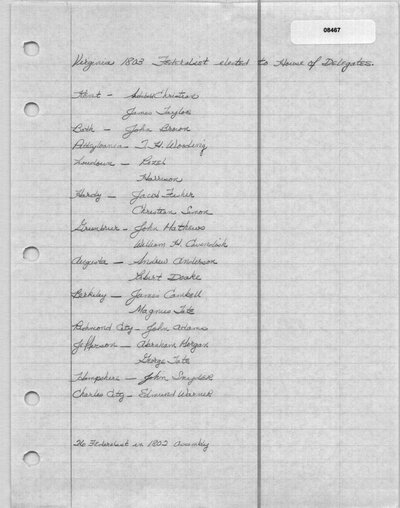 08467
Virginia 1803 Federalist elected to House of Delegates.
Kent - Christian
James Taylor
Bath - John Brown
Pittsylvania - T. H. Wooding
Loudoun -
Harrison
Hardy - Jacob Fisher
Christian Simon
Greenbrier - John Mathews
William H Cavendish
Augusta - Andrew Anderson
Robert Doake
Berkeley - James Cambell
Magnus Tate
Richmond City - John Adams
Jefferson - Abraham Morgan
George Tate
Hampshire - John Snyder
Charles City - Edmund Warner
The Federalist in 1802 Assembly